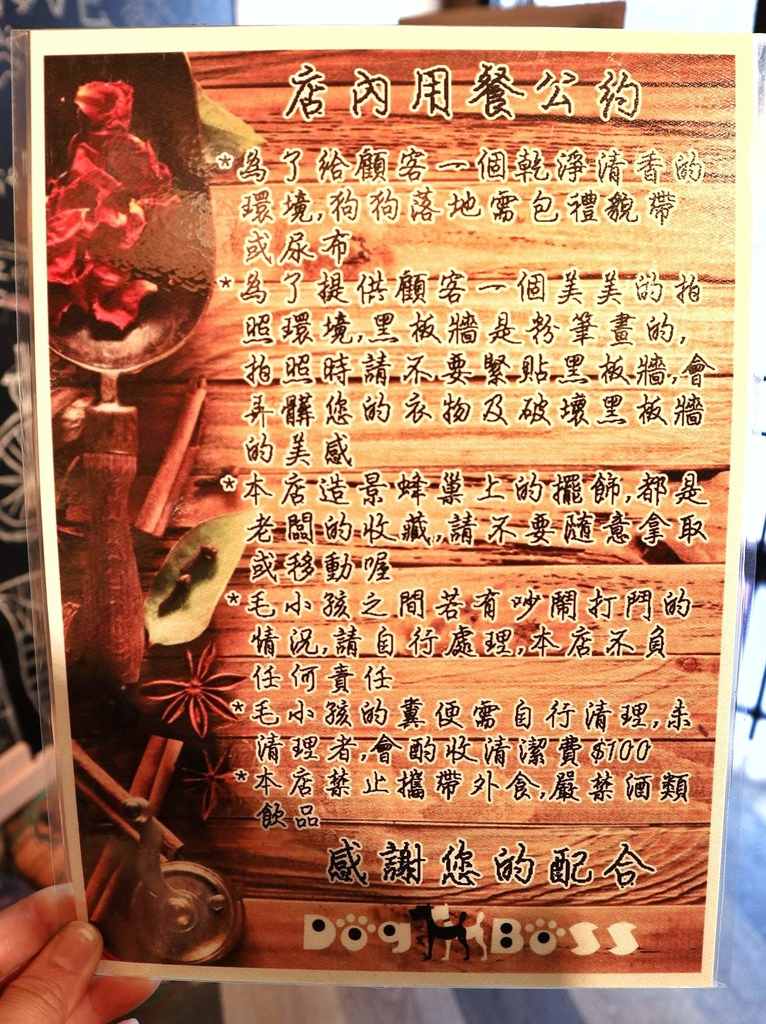 店內用餐公約
*為了給顧客一個乾淨清香的
環境,狗狗落地需包禮貌帶
或尿布
*為了提供顧客一個美美的拍
照環境,黑板牆是粉筆畫的,
拍照時請不要緊貼黑板牆,會
弄髒您的衣物及破壞黑板牆
的美感
*本店造景蜂巢上的擺飾,都是
老闆的收藏,請不要隨意拿取
或移動喔
*毛小孩之間若有吵鬧打鬥的
情況,請自行處理,本店不負
任何責任
*毛小孩的糞便需自行清理,未
清理者,會酌收清潔費$100
*本店禁止攜帶外食,嚴禁酒類
飲品
感謝您的配合
Dog Boss